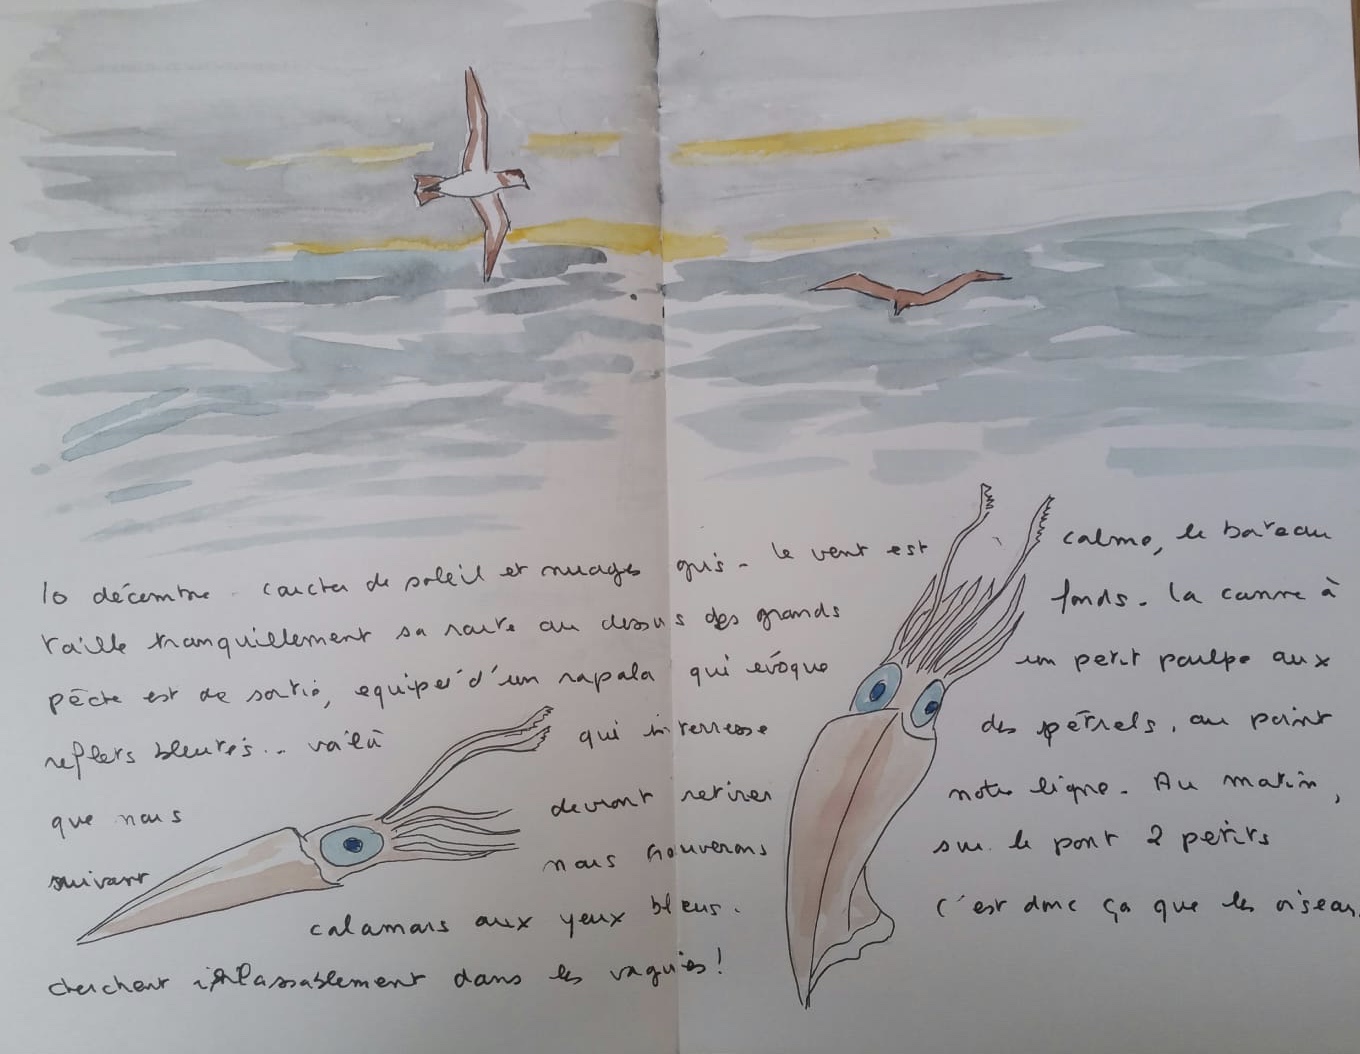 10 décembre. Coucher de soleil et nuages gris. Le vent est calme, le bateau
taille tranquillement sa route au dessus des grands fonds. La canne à
pêche est de sortie, equipée d'un rapala qui évoque un petit poulpe aux
reflets bleutés... voilà qui interresse des pétrels, au point
que nous devront retirer notre ligne. Au matin,
suivant nous trouverons sur le pont 2 petits
calamars aux yeux bleus. C'est donc ça que les oiseaux
cherchent inlassablement dans les vagues !